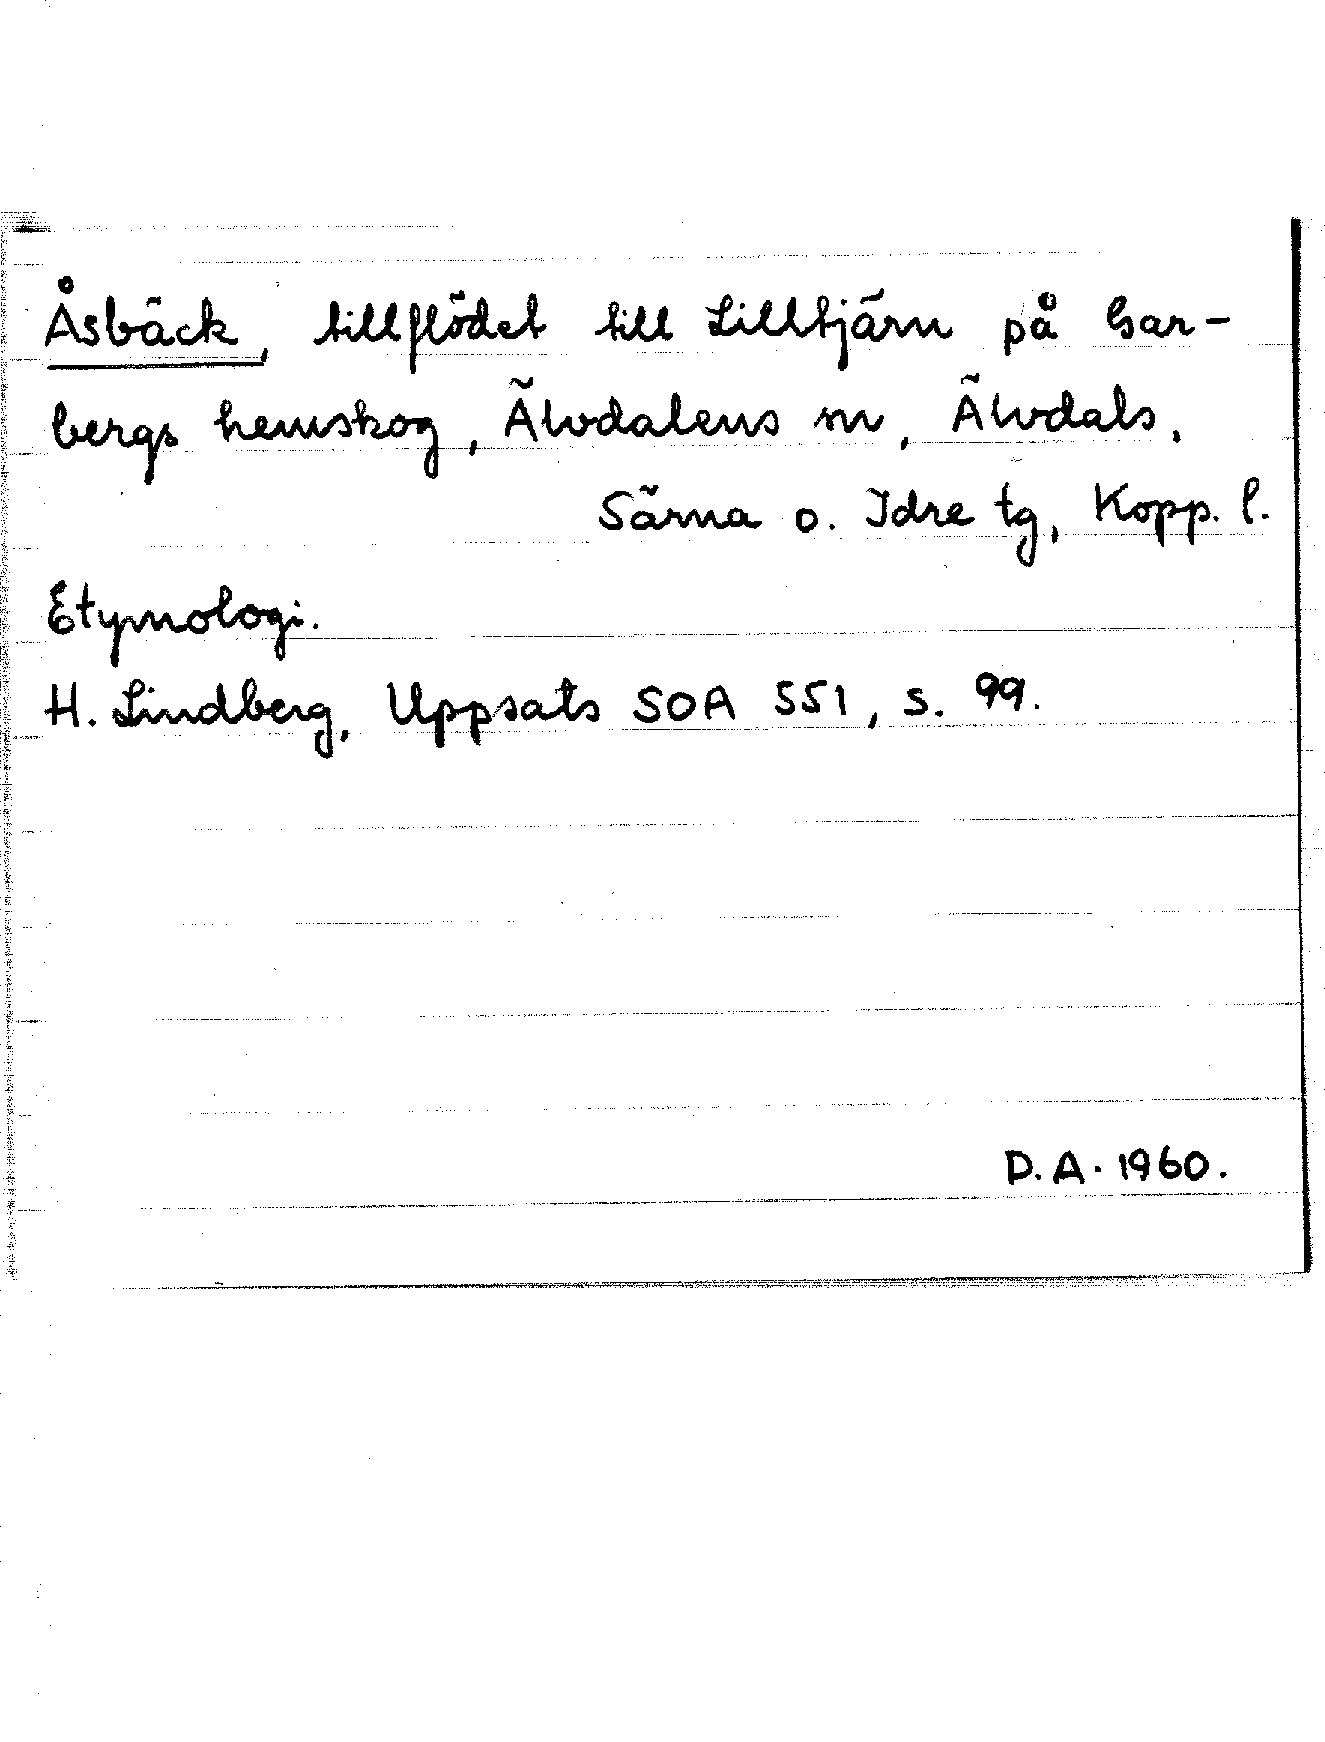 Åsbäck, tillflödet till Lilltjärn på Gar-
bergs hemskog, Älvdalens sn, Älvdals,
Särna o. Idre tg, Kopp. l.
Etymologi.
H. Lindberg, Uppsats SOA 551, s. 99.
D.A. 1960.